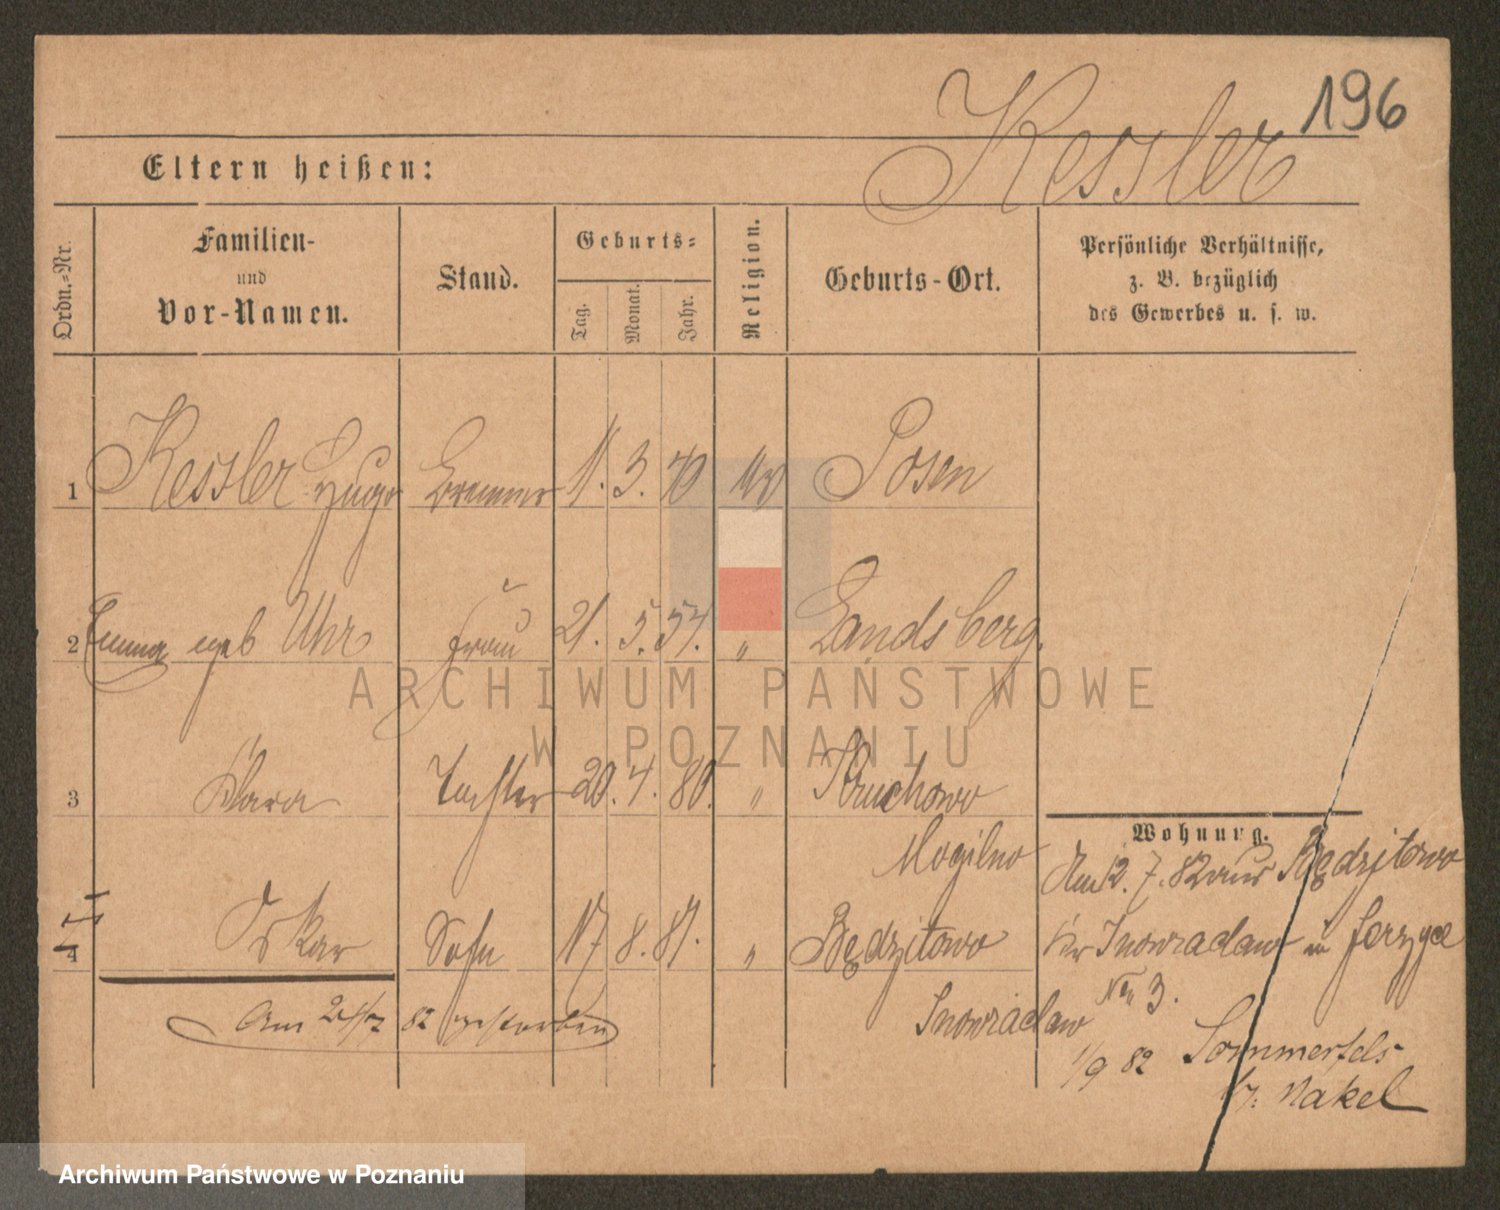 Kessler 196
Eltern heißen:
Ordn.-Nr. Familien- und Vor-Namen. Stand. Geburts- Tag. Monat. Jahr. Religion. Geburts-Ort. Persönliche Verhältnisse, z. B. bezüglich des Gewerbes u. s. w.
1 Kessler Hugo 3. Posen
2 Emma geb Uhr Frau 21. 5. 57. " Landsberg.
3 Klara Tochter 20. 4. 80. " Kruchowo
Mogilno
Wohnung.
Am 12. 7. 82 aus Będzitowo
4 Oskar Sohn 17 8. 81. " Będzitowo
Inowradaw
Kr Inowradaw in Jerzyce
No 3.
Am 21/7 82 gestorben
1/9 82 Sommerfels
Nakel
ARCHIWUM PAŃSTWOWE
W POZNANIU
Archiwum Państwowe w Poznaniu